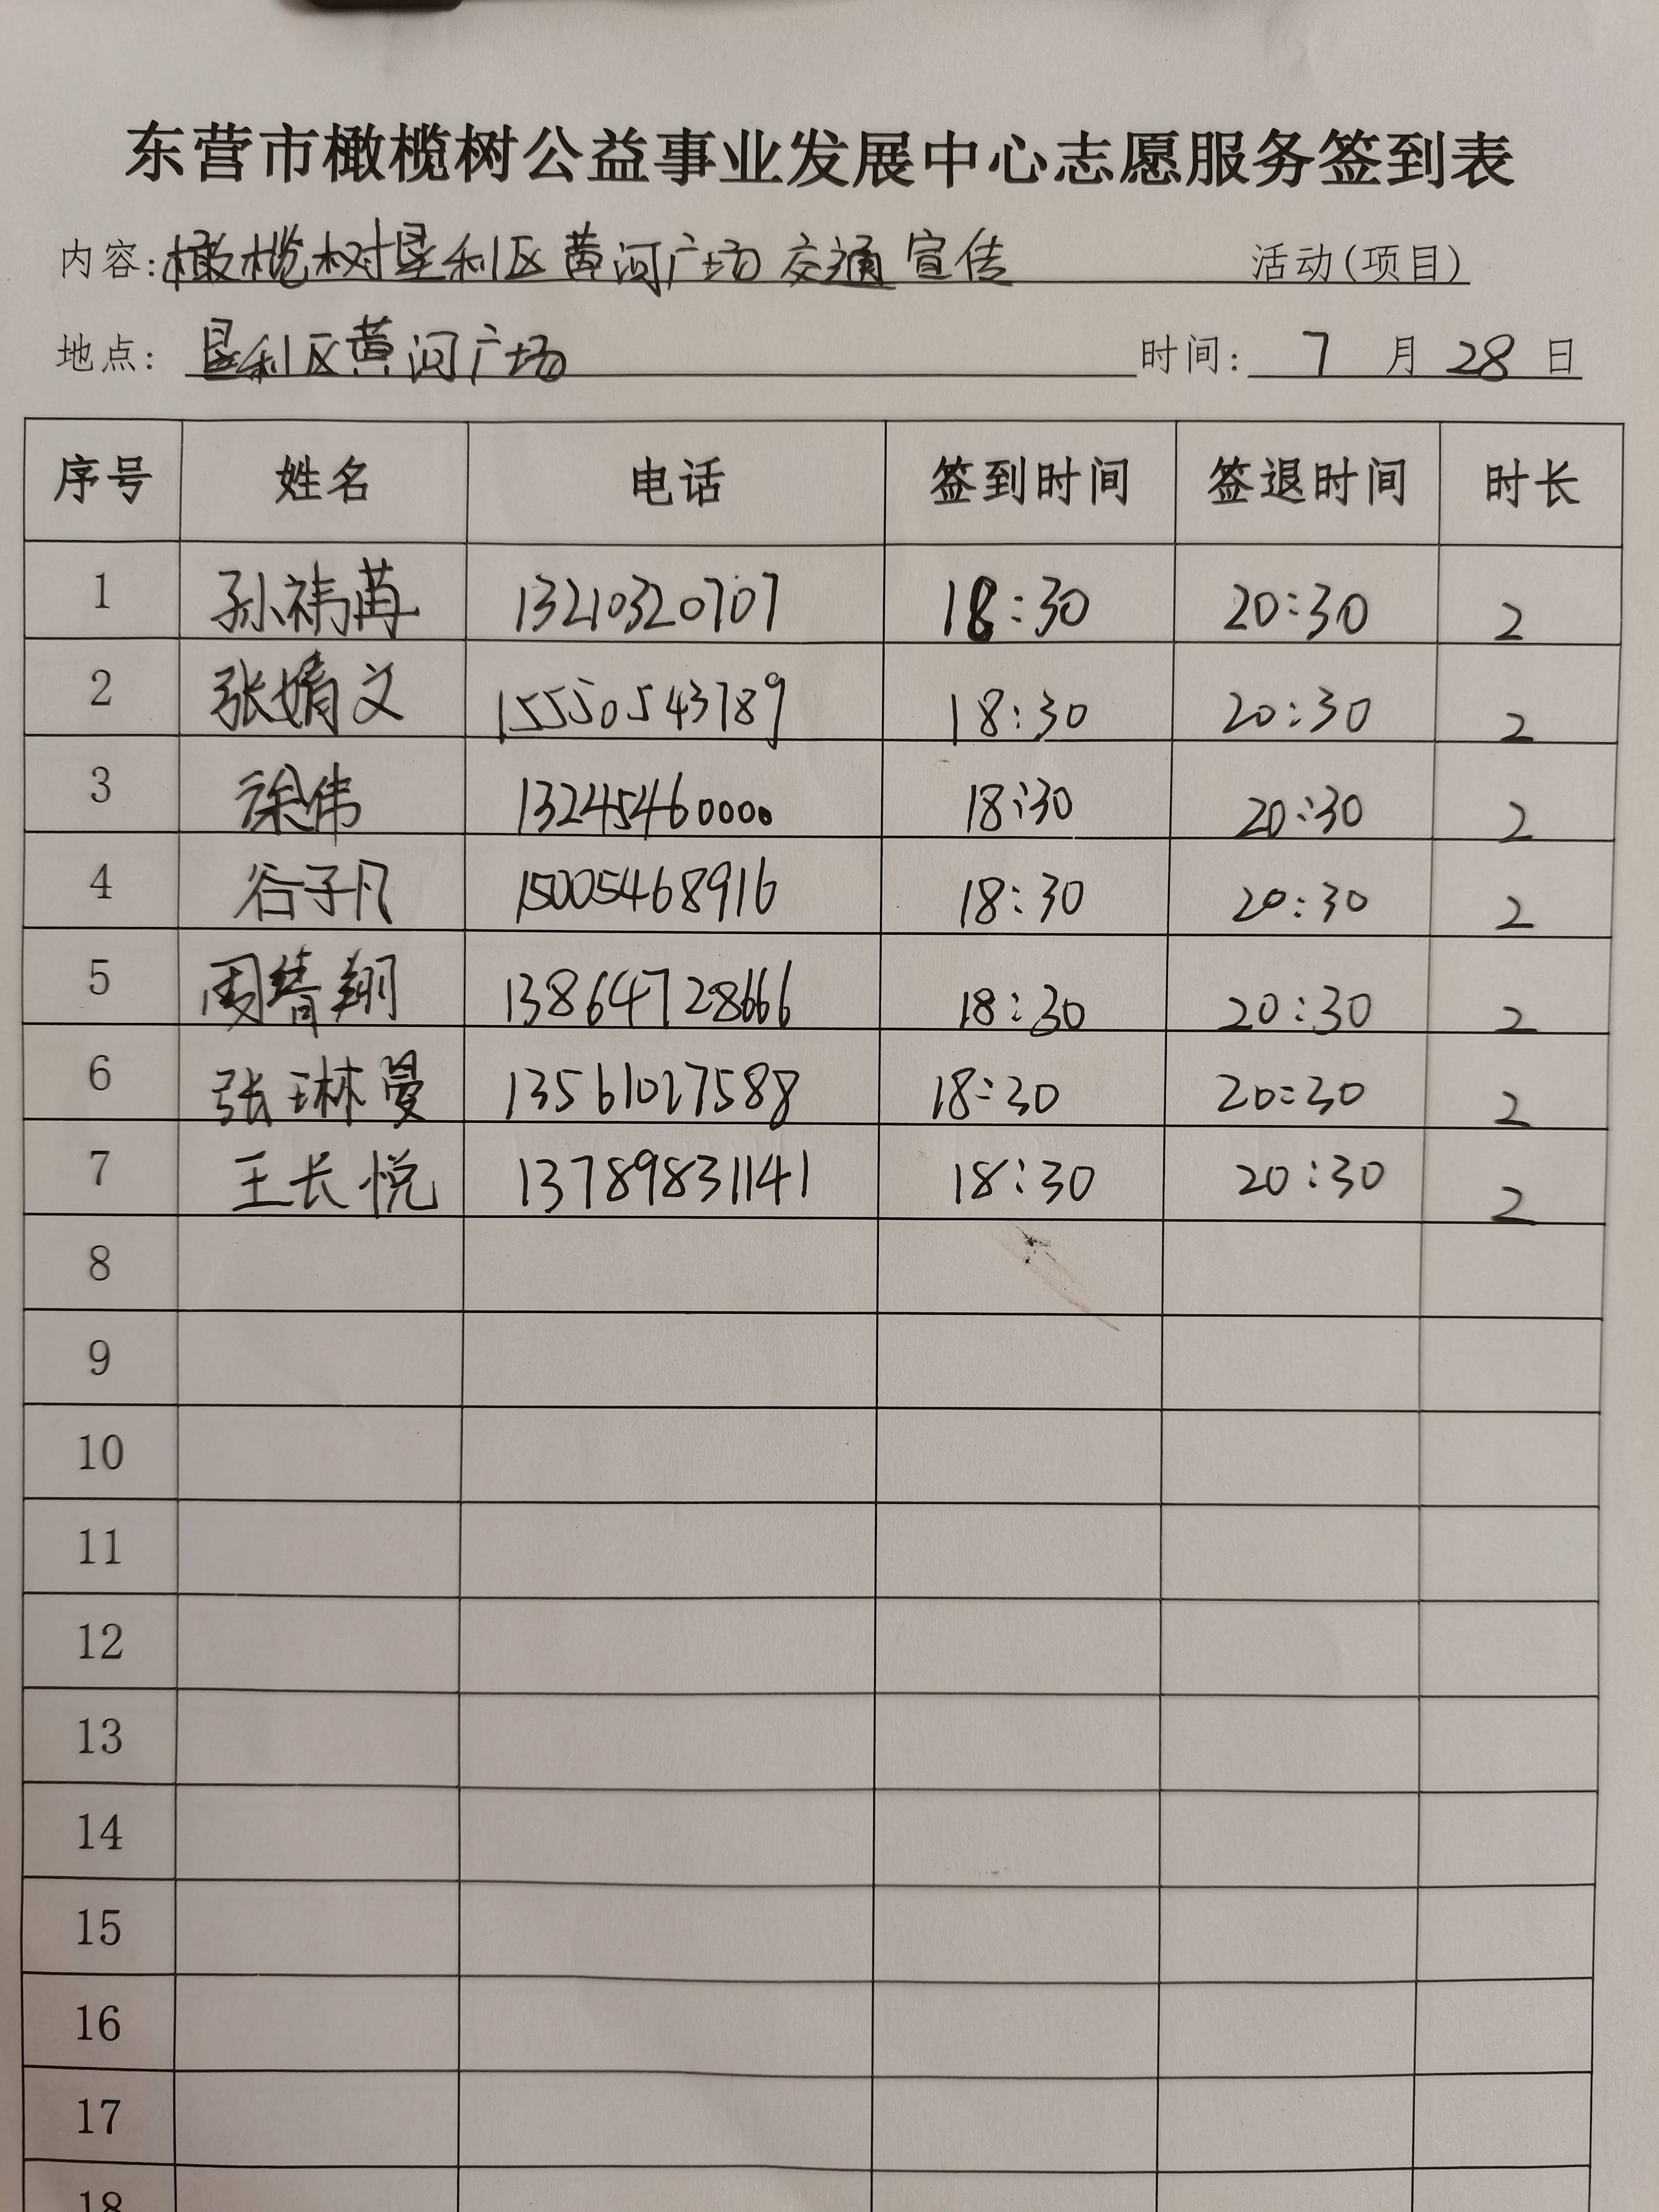 东营市橄榄树公益事业发展中心志愿服务签到表
内容:橄榄树垦利区黄河广场交通宣传 活动(项目)
地点: 垦利区黄河广场 时间: 7 月 28 日
序号 姓名 电话 签到时间 签退时间 时长
1 孙祎苒 13210320707 18:30 20:30 2
2 张婧文 15550543789 18:30 20:30 2
3 徐伟 13245460000 18:30 20:30 2
4 谷子凡 15005468916 18:30 20:30 2
5 周绪翔 13864728666 18:30 20:30 2
6 张琳曼 13561017588 18:30 20:30 2
7 王长悦 13789831141 18:30 20:30 2
8
9
10
11
12
13
14
15
16
17
18